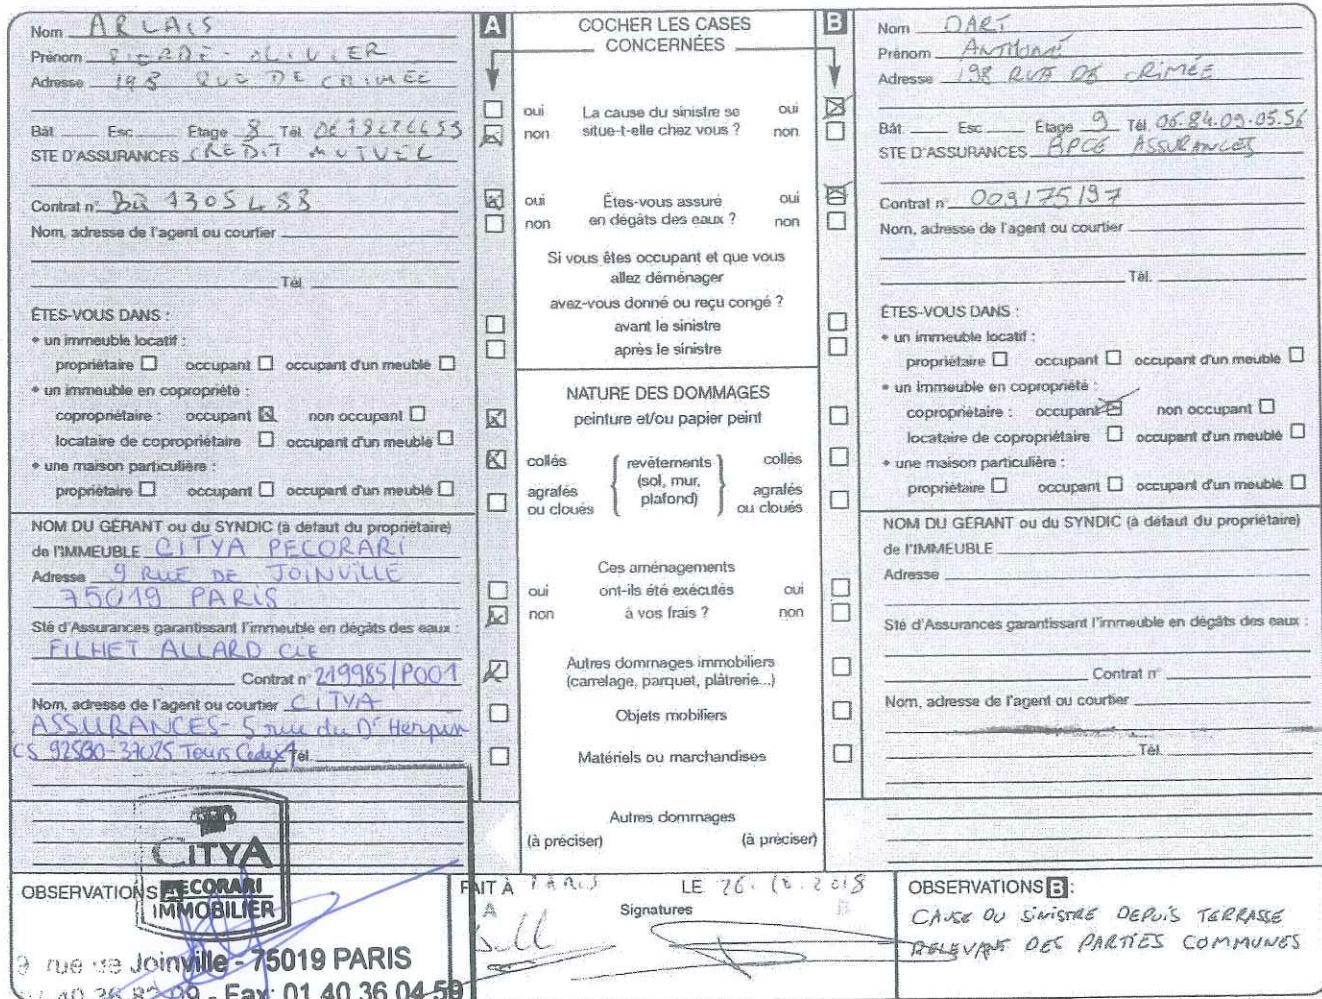 Nom ARLAIS
Prénom PIERRE-OLIVIER
Adresse 198 RUE DE CRIMÉE
Bât. Esc. Etage 8 Tél.
STE D'ASSURANCES CREDIT MUTUEL
Contrat n°
Nom, adresse de l'agent ou courtier
Tél.
ÊTES-VOUS DANS :
• un immeuble locatif :
propriétaire occupant occupant d'un meublé
• un immeuble en copropriété :
copropriétaire : occupant non occupant
locataire de copropriétaire occupant d'un meublé
• une maison particulière :
propriétaire occupant occupant d'un meublé
NOM DU GÉRANT ou du SYNDIC (à défaut du propriétaire)
de l'IMMEUBLE CITYA PECORARI
Adresse 9 RUE DE JOINVILLE
75019 PARIS
Sté d'Assurances garantissant l'immeuble en dégâts des eaux :
FILHET ALLARD CIE
Contrat n° 219985/P001
Nom, adresse de l'agent ou courtier CITYA
ASSURANCES - 5 rue du Dr Herpin
CS 92530-37025 Tours Cedex 1 Tél.
A
COCHER LES CASES
CONCERNÉES
B
oui La cause du sinistre se oui
non situe-t-elle chez vous ? non
oui Êtes-vous assuré oui
non en dégâts des eaux ? non
Si vous êtes occupant et que vous
allez déménager
avez-vous donné ou reçu congé ?
avant le sinistre
après le sinistre
NATURE DES DOMMAGES
peinture et/ou papier peint
collés revêtements collés
(sol, mur,
agrafés plafond) agrafés
ou cloués ou cloués
Ces aménagements
oui ont-ils été exécutés oui
non à vos frais ? non
Autres dommages immobiliers
(carrelage, parquet, plâtrerie...)
Objets mobiliers
Matériels ou marchandises
Autres dommages
(à préciser) (à préciser)
Nom DART
Prénom
Adresse 198 RUE DE CRIMÉE
Bât. Esc. Etage 9 Tél. 06.84.09.05.56
STE D'ASSURANCES BPCE ASSURANCES
Contrat n° 009175197
Nom, adresse de l'agent ou courtier
Tél.
ÊTES-VOUS DANS :
• un immeuble locatif :
propriétaire occupant occupant d'un meublé
• un immeuble en copropriété :
copropriétaire : occupant non occupant
locataire de copropriétaire occupant d'un meublé
• une maison particulière :
propriétaire occupant occupant d'un meublé
NOM DU GÉRANT ou du SYNDIC (à défaut du propriétaire)
de l'IMMEUBLE
Adresse
Sté d'Assurances garantissant l'immeuble en dégâts des eaux :
Contrat n°
Nom, adresse de l'agent ou courtier
Tél.
OBSERVATIONS A
CITYA
PECORARI
IMMOBILIER
9 rue de Joinville - 75019 PARIS
40 36 82 09 - Fax: 01 40 36 04 59
FAIT À PARIS LE 2018
A Signatures B
OBSERVATIONS B :
CAUSE DU SINISTRE DEPUIS TERRASSE
RELEVANT DES PARTIES COMMUNES